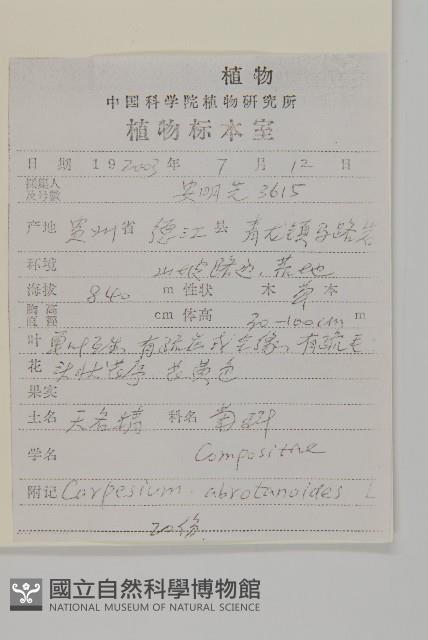 植物
中国科学院植物研究所
植物标本室
日 期 19 2003 年 7 月 12 日
採集人及号數 安明先 3615
产地 贵州 省 德江 县 青龙镇
环境 山坡路边、荒地
海拔 840 m 性状 木 草 本
胸高直徑 cm 体高 30-100cm m
叶 单叶互生、有疏齿或全缘、有疏毛
花 头状花序 黄色
果实
土名 天名精 科名 菊科
学名 Compositae
附记 Carpesium abrotanoides L
國立自然科學博物館
NATIONAL MUSEUM OF NATURAL SCIENCE